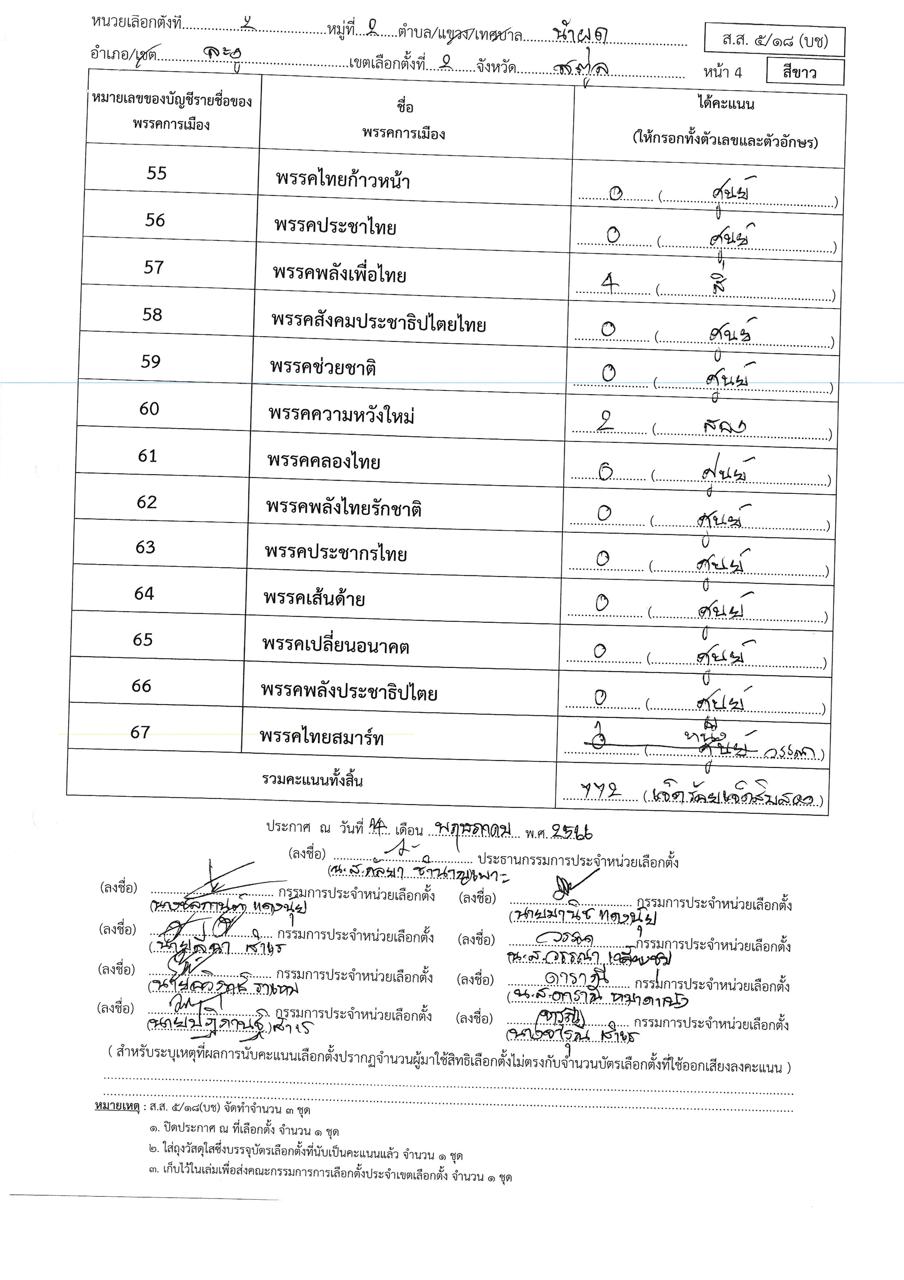 หน่วยเลือกตั้งที่ 2 หมู่ที่ 2 ตำบล/แขวง/เทศบาล น้ำผุด
ส.ส. ๕/๑๘ (บช)
อำเภอ/เขต ละงู เขตเลือกตั้งที่ 2 จังหวัด สตูล หน้า 4 สีขาว
หมายเลขของบัญชีรายชื่อของพรรคการเมือง ชื่อพรรคการเมือง ได้คะแนน (ให้กรอกทั้งตัวเลขและตัวอักษร)
55 พรรคไทยก้าวหน้า 0 (ศูนย์)
56 พรรคประชาไทย 0 (ศูนย์)
57 พรรคพลังเพื่อไทย 4 (สี่)
58 พรรคสังคมประชาธิปไตยไทย 0 (ศูนย์)
59 พรรคช่วยชาติ 0 (ศูนย์)
60 พรรคความหวังใหม่ 2 (สอง)
61 พรรคคลองไทย 0 (ศูนย์)
62 พรรคพลังไทยรักชาติ 0 (ศูนย์)
63 พรรคประชากรไทย 0 (ศูนย์)
64 พรรคเส้นด้าย 0 (ศูนย์)
65 พรรคเปลี่ยนอนาคต 0 (ศูนย์)
66 พรรคพลังประชาธิปไตย 0 (ศูนย์)
67 พรรคไทยสมาร์ท 1 0 (หนึ่ง ศูนย์ วรรณา)
รวมคะแนนทั้งสิ้น 772 (เจ็ดร้อยเจ็ดสิบสอง)
ประกาศ ณ วันที่ 14 เดือน พฤษภาคม พ.ศ. 2566
(ลงชื่อ) ประธานกรรมการประจำหน่วยเลือกตั้ง
(น.ส.กัลยา ชำนาญเพาะ
(ลงชื่อ) กรรมการประจำหน่วยเลือกตั้ง (ลงชื่อ) กรรมการประจำหน่วยเลือกตั้ง
(นายมานิช ทดงนุ้ย
(ลงชื่อ) กรรมการประจำหน่วยเลือกตั้ง (ลงชื่อ) วรรณา กรรมการประจำหน่วยเลือกตั้ง
น.ส.วรรณา
(ลงชื่อ) กรรมการประจำหน่วยเลือกตั้ง (ลงชื่อ) ดาราณี กรรมการประจำหน่วยเลือกตั้ง
(น.ส.ดาราณี
(ลงชื่อ) กรรมการประจำหน่วยเลือกตั้ง (ลงชื่อ) กรรมการประจำหน่วยเลือกตั้ง
( สำหรับระบุเหตุที่ผลการนับคะแนนเลือกตั้งปรากฏจำนวนผู้มาใช้สิทธิเลือกตั้งไม่ตรงกับจำนวนบัตรเลือกตั้งที่ใช้ออกเสียงลงคะแนน )
หมายเหตุ : ส.ส. ๕/๑๘(บช) จัดทำจำนวน ๓ ชุด
๑. ปิดประกาศ ณ ที่เลือกตั้ง จำนวน ๑ ชุด
๒. ใส่ถุงวัสดุใสซึ่งบรรจุบัตรเลือกตั้งที่นับเป็นคะแนนแล้ว จำนวน ๑ ชุด
๓. เก็บไว้ในเล่มเพื่อส่งคณะกรรมการการเลือกตั้งประจำเขตเลือกตั้ง จำนวน ๑ ชุด